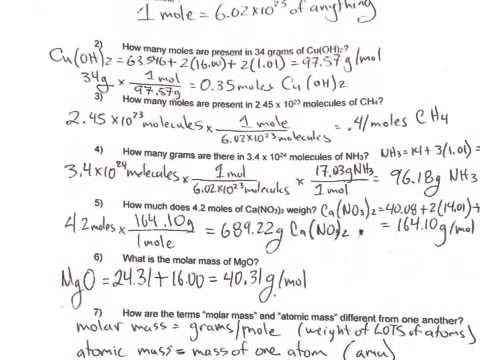 1 mole = 6.02x10²³ of anything
2) How many moles are present in 34 grams of Cu(OH)₂?
Cu(OH)₂ = 63.546 + 2(16.00) + 2(1.01) = 97.57g/mol
34g x 1mol/97.57g = 0.35moles Cu(OH)2
3) How many moles are present in 2.45 x 10²³ molecules of CH₄?
2.45 x10²³molecules x 1mole/6.02x10²³molecules = .41moles CH4
4) How many grams are there in 3.4 x 10²⁴ molecules of NH₃? NH3 = 14 + 3(1.01) =
3.4x10²⁴molecules x 1mol/6.02x10²³molecules x 17.03gNH3/1mol = 96.18g NH3
5) How much does 4.2 moles of Ca(NO₃)₂ weigh? Ca(NO3)2 = 40.08 + 2(14.01) +
4.2moles x 164.10g/1mole = 689.22g Ca(NO)2. = 164.10g/mol
6) What is the molar mass of MgO?
MgO = 24.31 + 16.00 = 40.31g/mol
7) How are the terms "molar mass" and "atomic mass" different from one another?
molar mass = grams/mole (weight of LOTS of atoms)
atomic mass = mass of one atom (amu)